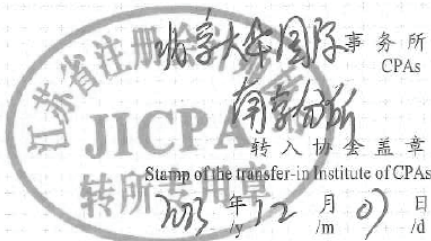 江苏省注册会计师协会
JICPA
转所专用章
大华国际事务所
CPAs
南京分所
转入协会盖章
Stamp of the transfer-in Institute of CPAs
2023年12月07日
/y /m /d